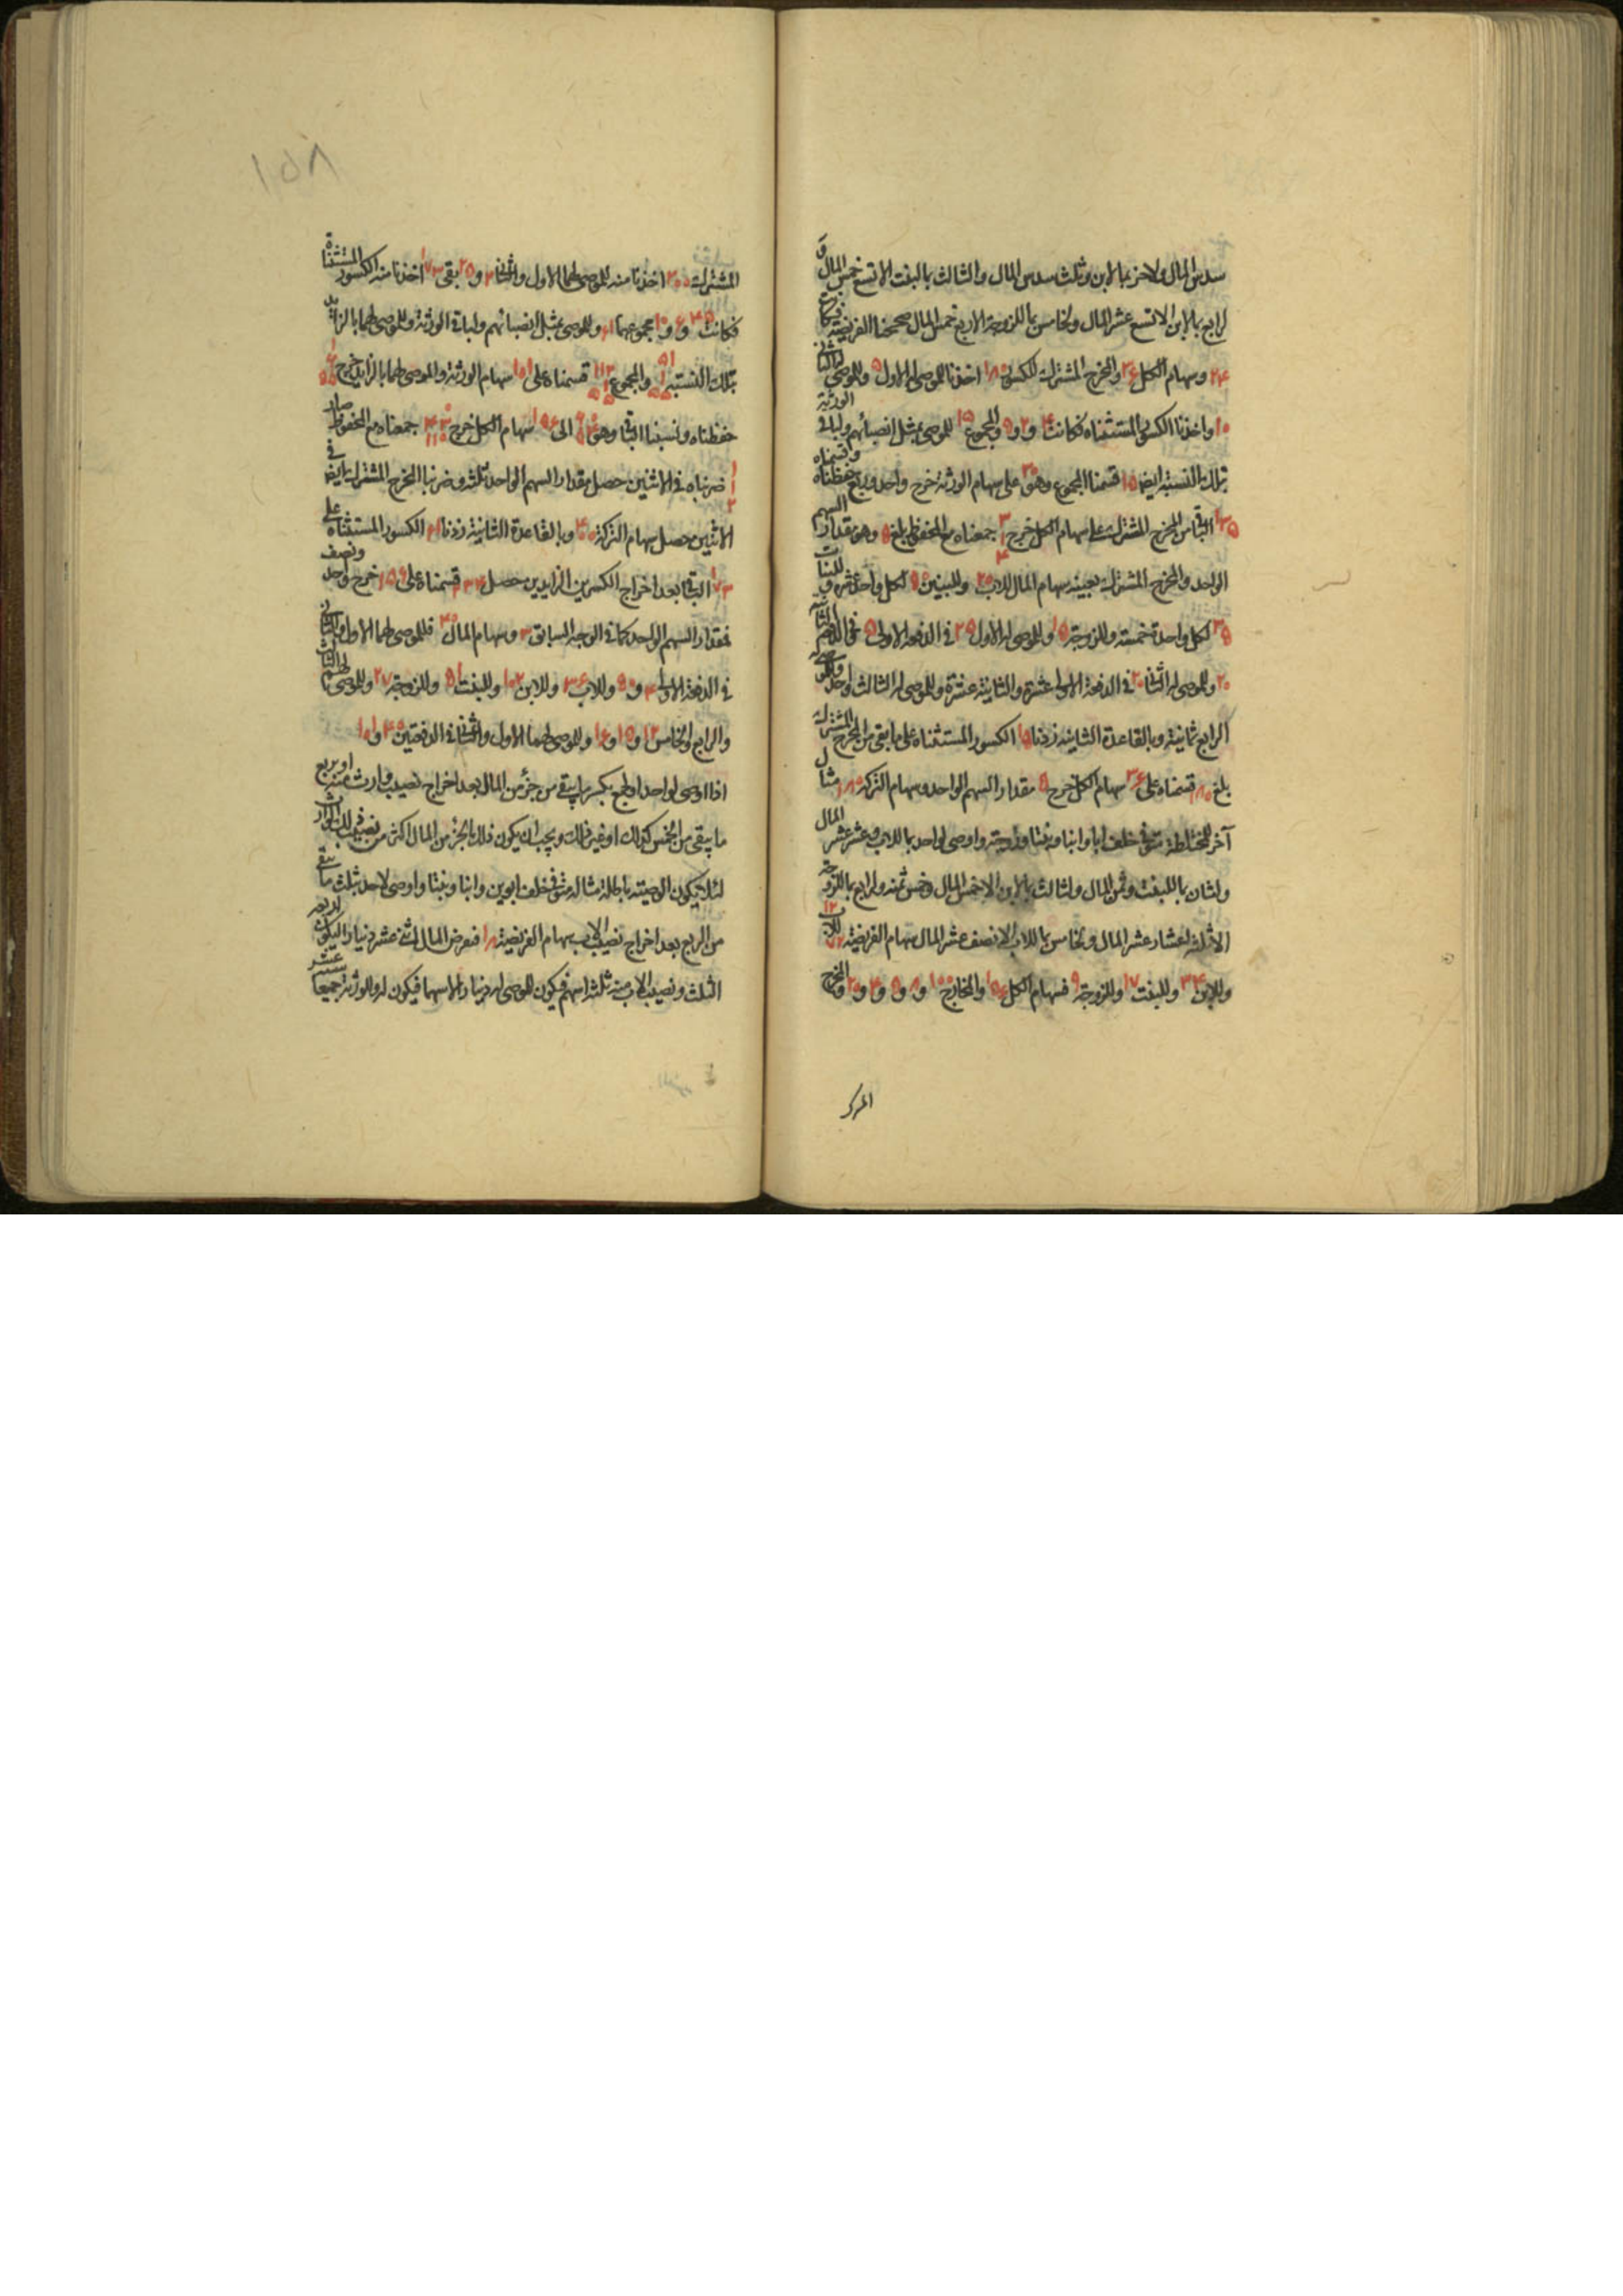 سدس المال ولاخر بمالابن وثلث سدس المال والثالث بمالبنت الا تسع خمس المال و
لرابع بمالابن الا تسع عشر المال ولخامس بما للزوجة الا ربع خمس المال صححنا الفريضة فكانت
٢٤ وسهام الكل ٣٦ والمخرج المشترك للكسور ١٨٠ اخذنا للموصى له الاول ٥ وللموصى له الثاني
١٠ واخذنا الكسور المستثناه فكانت ٤ و ٢ و ٩ والمجموع ١٥ للموصى بمثل انصبائهم ولباقي الورثة
بتلك النسبة ايضا ١٥ قسمنا المجموع وهو ٣٠ على سهام الورثة خرج واحد وربع حفظناه وقسمناه
الباقي من المخرج المشترك على سهام الكل خرج جمعناه مع المحفوظ بلغ ٥ وهو مقدار السهم
الواحد والمخرج المشترك بعينه سهام المال للاب ٢٠ وللبنين لكل واحد عشرة وللبنات
لكل واحدة خمسة وللزوجة ١٥ وللموصى له الاول ٢٥ في الدفعة الاولى ٥ وفي الثانية
٢٠ وللموصى له الثاني ٢٠ في الدفعة الاولى عشرة والثانية عشرة وللموصى له الثالث واحد وللموصى له
الرابع ثمانية وبالقاعدة الثانية زدنا ١٥ الكسور المستثناه على ما بقى من المخرج المشترك
بلغ ١٨٠ قسمناه على ٣٦ سهام الكل خرج ٥ مقدار السهم الواحد وسهام التركة ١٨٠ مثال
آخر للمختلطة متوفى خلف ابا وابنا وبنتا وزوجة واوصى لواحد بما للاب وعشر عشر المال
ولثان بما للبنت وثمن المال ولثالث بمالابن الا خمس المال وخمس ثمنه ولرابع بما للزوجة
الا ثلثة اعشار عشر المال ولخامس بما للاب الا نصف عشر المال سهام الفريضة ٧٢ للاب ١٢
وللابن ٣٤ وللبنت ١٧ وللزوجة ٩ فسهام الكل ١٥٦ والمخارج ١٠٠ و ٨ و ٥ و ٤٠ و ٢٠ والمخرج
المشترك ٢٠٠ اخذنا منه للموصى لهما الاول والثاني ٢ و ٢٥ بقى ١٧٣ اخذنا منه الكسور المستثناة
فكانت ٤٥ و ٦ و ١٠ مجموعها ٦١ وللموصى بمثل انصبائهم ولباقي الورثة وللموصى لهما بالزائد
بتلك النسبة والمجموع قسمناه على ١٥١ سهام الورثة والموصى لهما بالزايد خرج
حفظناه ونسبنا الباقي وهو الى ١٥٦ سهام الكل خرج جمعناه مع المحفوظ صار
ضربناه في الاثنين حصل مقدار السهم الواحد ثلثة وضربنا المخرج المشترك ايضا في
الاثنين حصل سهام التركة ٤٠٠ وبالقاعدة الثانية زدنا ٦١ الكسور المستثناة على
١٧٣ الباقي بعد اخراج الكسرين الزايدين حصل ٢٣٤ قسمناه على ١٥٦ خرج واحد ونصف
فمقدار السهم الواحد كما في الوجه السابق ٣ وسهام المال ٤٠٠ فللموصى لهما الاول والثاني
في الدفعة الاولى ٤ و ٥٠ وللاب ٣٦ وللابن ١٠٢ وللبنت ٥١ وللزوجة ٢٧ وللموصى لهم الثالث
والرابع والخامس ١٢ و ١٥ و ١٦ وللموصى لهما الاول والثاني في الدفعتين ٤٠ و ١٠١
اذا اوصى لواحد او لجمع بكسر ما يبقى من جزء من المال بعد اخراج نصيب وارث منه او بربع
ما يبقى من الخمس كذلك او غير ذلك ويجب ان يكون ذلك الجزء من المال اكثر من نصيب ذلك الوارث
لئلا تكون الوصية باطلة مثاله متوفى خلف ابوين وابنا وبنتا واوصى لاحد بثلث ما يبقى
من الربع بعد اخراج نصيب الاب سهام الفريضة ١٨ فنفرض المال اثنى عشر دينارا ليكون لربعه
الثلث ونصيب الاب منه ثلثة اسهم فيكون للموصى له دينار الا سهما فيكون له وللورثة جميعا
المشترك
١٥٨